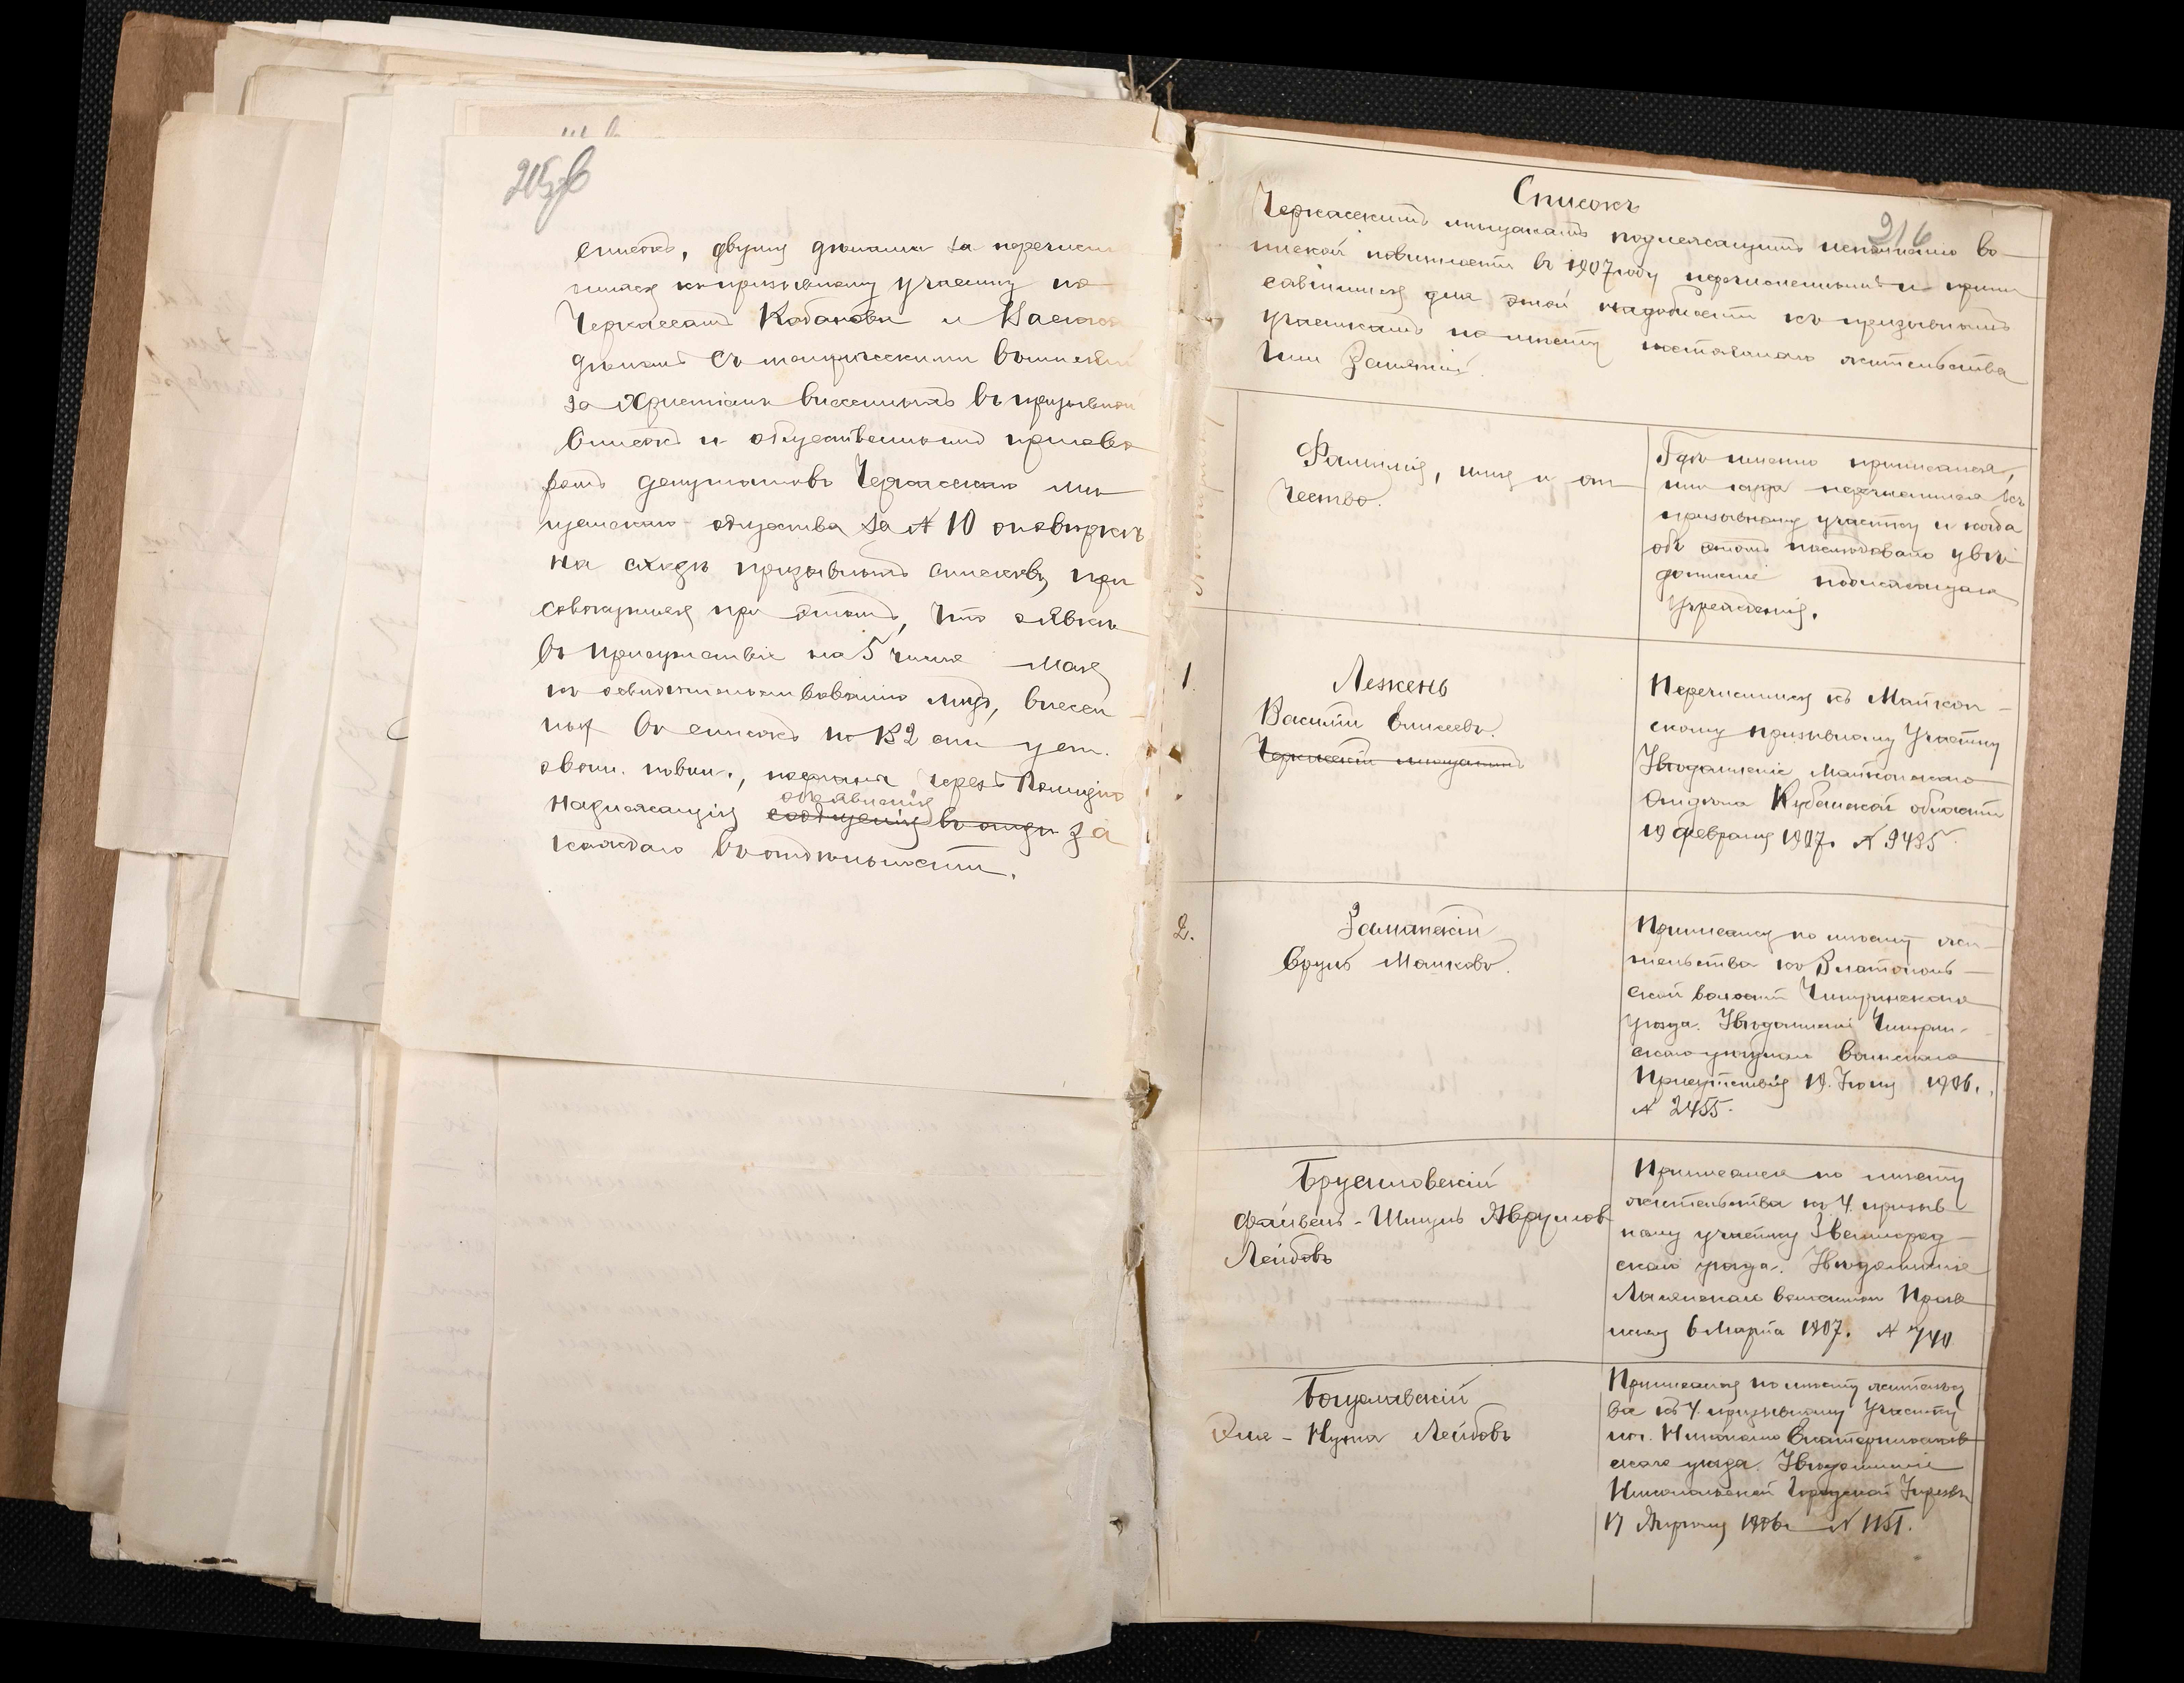 215об
списокъ, двумя дѣлами за перечисле
ніемъ къ призывному участку по
Черкассамъ Кабанови и
дѣламъ съ метрическими выписями
за Христіанъ внесенныхъ въ призывной
списокъ и общественнымъ пригово
ромъ депутатовъ Черкасскаго мѣ
щанскаго общества за № 10 о повѣркѣ
на сходѣ призывныхъ списковъ, при
совокупляя при этомъ, что о явкѣ
въ присутствіе на 5 число Мая
къ освидѣтельствованію лицъ, внесен
ныхъ въ списокъ по 132 ст. уст.
о воин. повин., посланы черезъ Полицію
объявленія
надлежащія сообщенія въ отдѣ за
каждаго въ отдѣльности.
216
Списокъ
Черкасскимъ мѣщанамъ подлежащимъ исполненію во
инской повинности въ 1907 году перечисленнымъ и припи
савшимся для этой надобности къ призывнымъ
участкамъ по мѣсту постояннаго жительства
или Занятій.
Фамилія, имя и от
чество.
Гдѣ именно приписался,
или куда перечислился къ
призывному участку и когда
объ этомъ послѣдовало увѣ
домленіе подлежащаго
Учрежденія.
1.
Лежень
Василій Елисеевъ.
Черкасскій мѣщанинъ
Перечислился къ Майкоп
скому призывному Участку
Увѣдомленіе Майкопскаго
Отдѣла Кубанской области
19 февраля 1907. № 9435
2.
Заманскій
Сруль Мошковъ.
Приписался по мѣсту жи
тельства къ Златополь
ской волости Чигиринскаго
уѣзда. Увѣдомленіе Чигирин
скаго уѣзднаго Воинскаго
Присутствія 19. Іюня 1906.
№ 2455.
Брусиловскій
Файвель-Шмуль Аврумов
Лейбовъ
Приписался по мѣсту
жительства къ 4 призыв
ному участку Звенигород
скаго уѣзда. Увѣдомленіе
6 Марта 1907. № 740
Богуславскій
Эля-Нухим Лейбовъ
Приписался по мѣсту жительст
ва къ 4 призывному Участку
скаго уѣзда. Увѣдомленіе
Никопольской Городской Управы
17 Апрѣля 1906 № 1151.